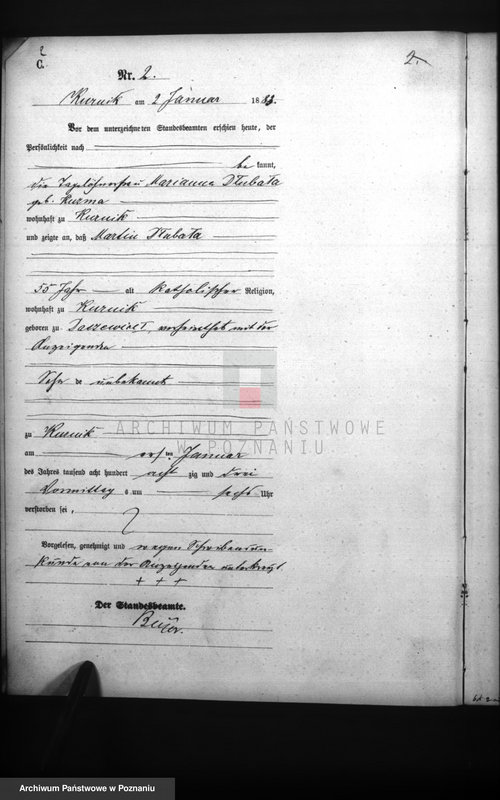 2
C.
2.
Nr. 2.
Kurnik am 2 Januar 1883.
Vor dem unterzeichneten Standesbeamten erschien heute, der
Persönlichkeit nach
be kannt,
die Tagelöhnerfrau Marianna Dłubała
geb. Kurma
wohnhaft zu Kurnik
und zeigte an, daß Martin Dłubała
55 Jahr alt katholischer Religion,
wohnhaft zu Kurnik
geboren zu Daszewice, verheirathet mit der
Anzeigenden
Sohn de unbekannt
zu Kurnik
am ersten Januar
des Jahres tausend acht hundert acht zig und drei
Vormittag s um sechs Uhr
verstorben sei.
Vorgelesen, genehmigt und wegen Schreibensun-
kunde von der Anzeigenden unterkreuzt.
+ + +
Der Standesbeamte.
ARCHIWUM PAŃSTWOWE
W POZNANIU
Archiwum Państwowe w Poznaniu